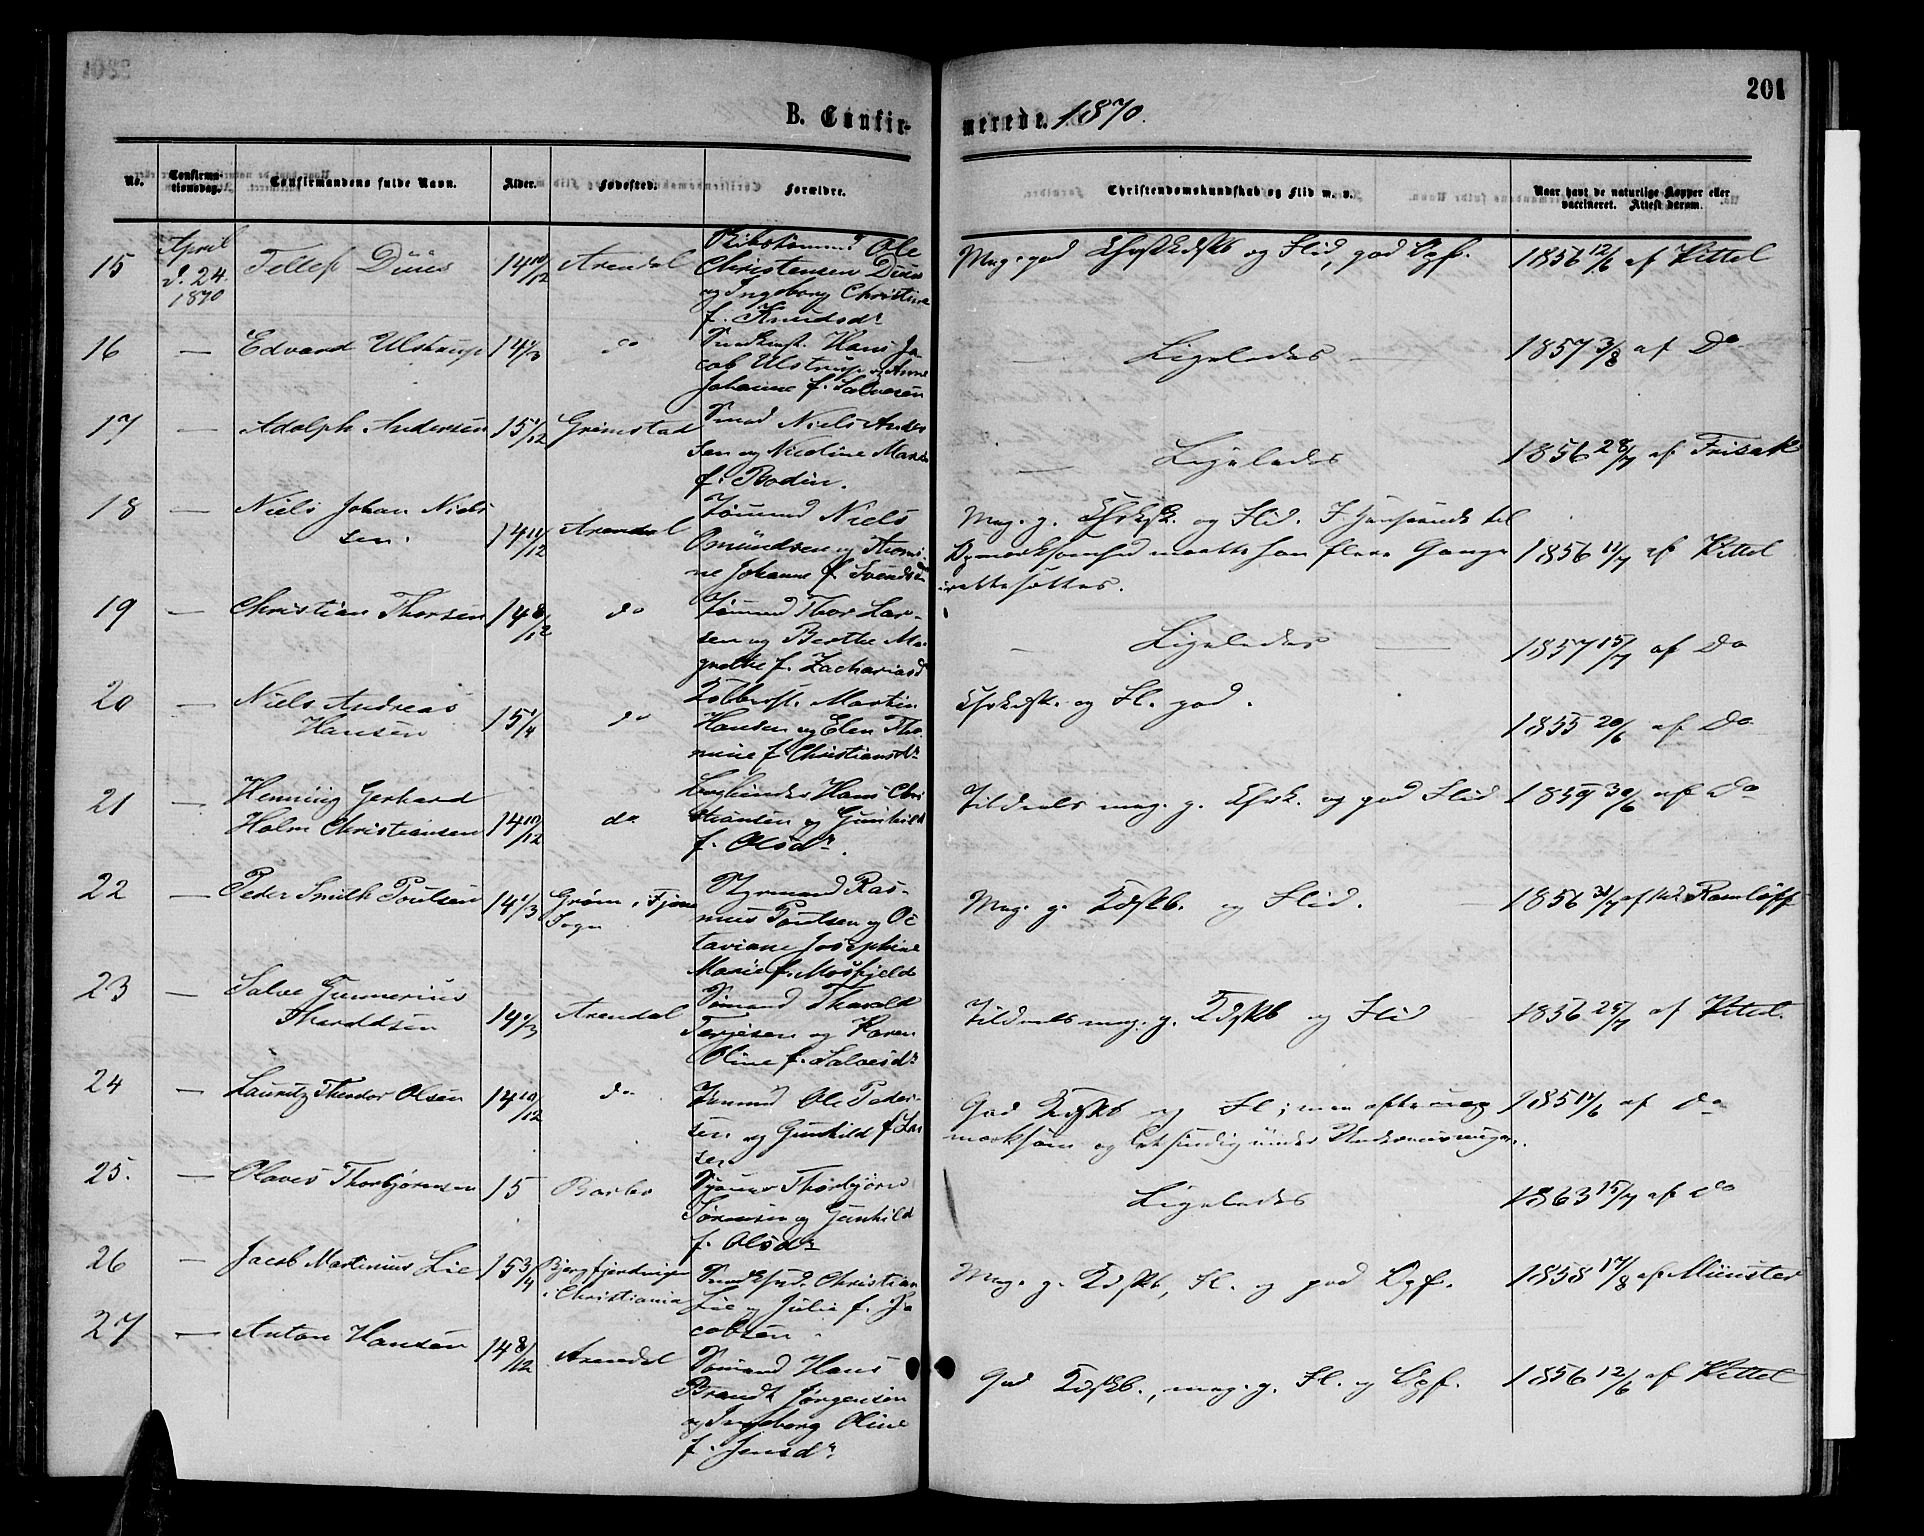 201
B. Confir- merede. 1870.
No. Confirma-tionsdag. Confirmandens fulde Navn. Alder. Fødested. Forældre. Christendomskundskab og Flid m. v. Naar havt de naturlige Kopper eller vaccineret. Attest derom.
15 April d. 24. 1870 Tellef Duus 14 10/12 Arendal Ole
Christensen Duus
og Ingeborg Christine
f. Knudsdr
Meg. god Chrstkdskb og Flid, god Opf. 1856 12/6 af Kittel
16 — Edvard Ulstrup 14 1/3 do Hans Ja-
cob Ulstrup og Anne
Johanne f. Salvesen
— Ligeledes — 1857 3/8 af Do
17 — Adolph Andersen 15 1/12 Grimstad Smed Niels Ander
sen og Nicoline Marie
f. Bodin.
— Ligeledes 1856 28/7 af Frisak
18 — Niels Johan Niel-
sen. 14 11/12 Arendal Tømmd Niels
Omundsen og Thomi-
ne Johanne f. Svendsdr
Meg. g. Chrkdsk. og Flid. I Henseende til
Opmærksomhed maatte han flere Gange
irettesættes.
1856 17/7 af Kittel
19 — Christian Thorsen 14 8/12 do Tømmd Thor Lar-
sen og Berthe Ma-
grethe f. Zachariasd
— Ligeledes — 1857 15/7 af Do
20 — Niels Andreas
Hansen 15 1/4 do Kobbersl. Martin
Hansen og Elen Tho-
mine f. Christiansdr
Chrkdsk. og Fl. god. 1855 20/6 af Do
21 — Henning Gerhard
Holm Christiansen 14 10/12 do Hans Chri
stiansen og Gunhild
f. Olsdr.
Tildeels meg. g. Chrk. og god Flid 1859 30/6 af Do
22 — Peder Smith Poulsen 14 1/3 Grøm, Fjære
Sogn Styrmand Ras-
mus Poulsen og Oc
taviane Josephine
Marie f. Mosfjeld
Meg. g. Kdskb. og Flid. 1856 31/7 af Ramløff
23 — Salve Gunnerius
Tharaldsen 14 1/3 Arendal Sømand Tharald
Terjesen og Karen
Oline f. Salvesdr
Tildeels meg. g. Kdskb og Flid 1856 25/7 af Kittel.
24 — Lauritz Theodor Olsen 14 10/12 do Tømmd Ole Peder-
sen og Gunhild f. Lar
sen
God Kdskb og Fl; men ofte uop
mærksom og letsindig under Underviisningen. 1851 14/6 af Do
25. — Olaves Thorbjørnsen 15 Barbo Thorbjørn
Sørensen og Gunhild
f. Olsdr
Ligeledes 1863 15/7 af Do
26 — Jacob Martinius Lie 15 3/4 Bjergfjerdingen
i Christiania Christian
Lie og Julie f. Ja
cobsen.
Meg. g. Kdskb, Fl. og god Opf. 1858 17/8 af Münster
27 — Anton Hansen 14 8/12 Arendal Sømand Hans
Brandt Jørgensen
og Ingeborg Oline
f. Jensdr.
God Kdskb., meg. g. Fl. og Opf. 1856 12/6 af Kittel